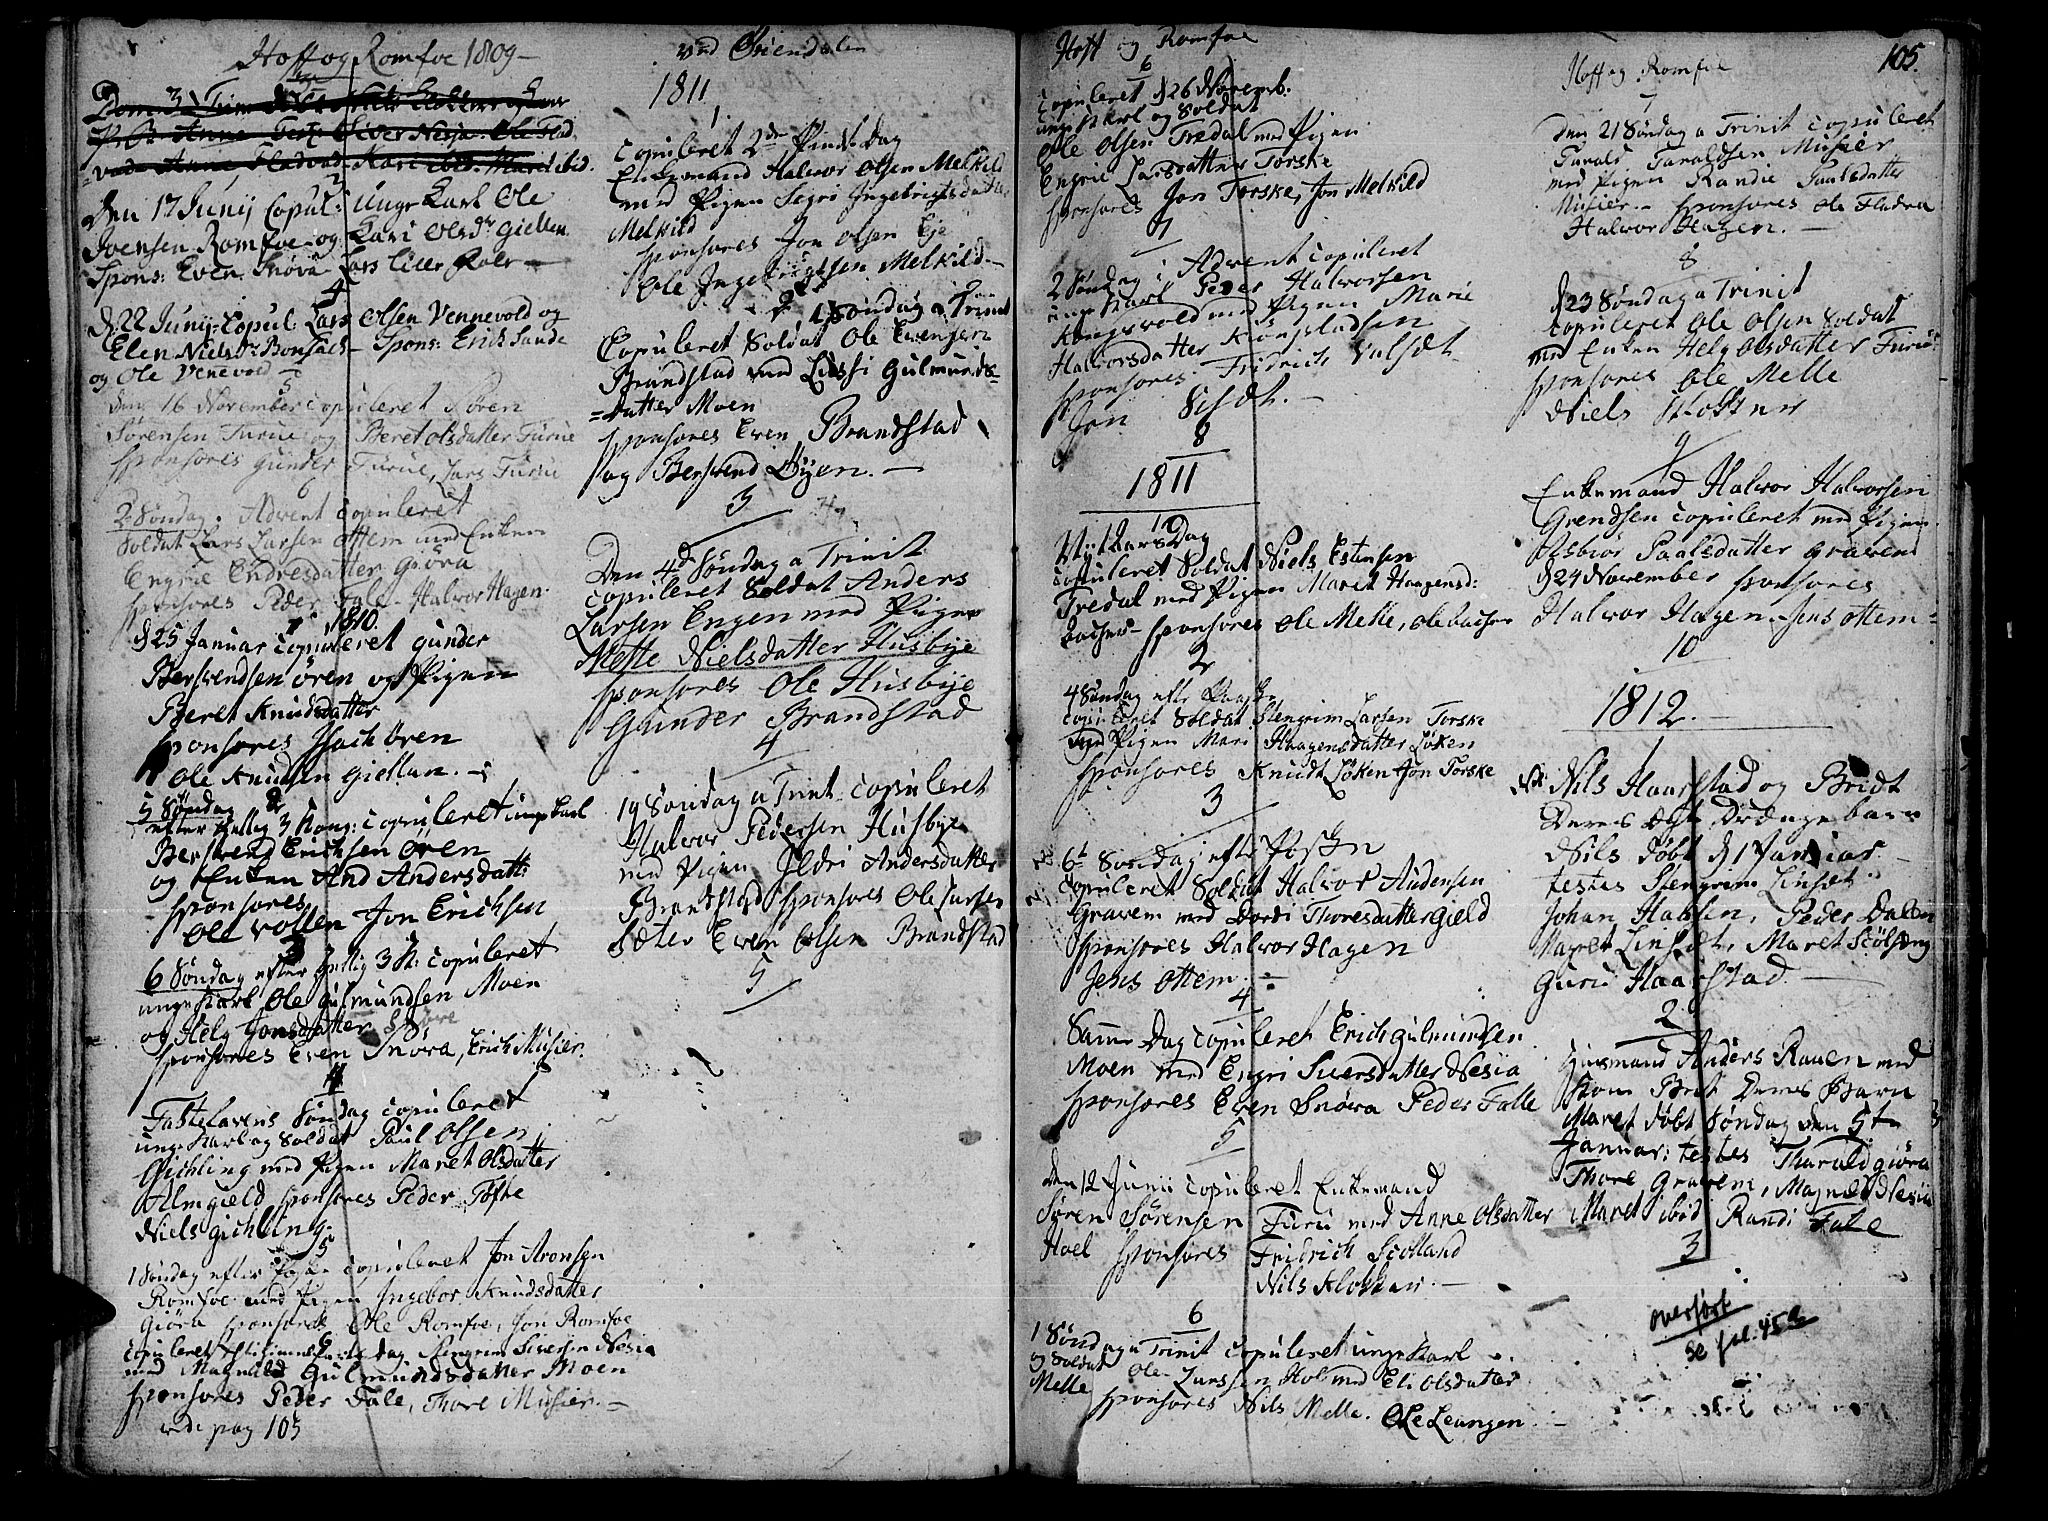 Hoff og Romfoe 1809
Dom: 3 Trin
Anne Test: Siver Nesja. Ole Flad
Anne Kari ibid: Marit ibid.
3
Den 17 Junij Copul: Unge Karl Ole
Joensen Romfoe og Kari Olsdr Giellen
Spons: Even Snøva Lars
4
d 22 Junij Copul Lars Olsen Vennevold og
Elen Nielsdr Bonsach Spons: Erich Sande
og Ole Venevold
5
den 16 November copuleret Søren
Sørensen Furue og Beret Olsdatter Furue
sponsores Gunder Furue, Lars Furue
6
2 Søndag i Advent copuleret
Soldat Lars Larsen Ottem med Enken
Engrie Endresdatter Giøra
sponsores Peder Fale Halvor Hagen
1810
d 25 Januar copuleret Gunder
Bersvendsen Ören og Pigen
Beret Knudsdatter
sponsores Isach Ören
Ole Knudsen Giellan.
2
5 Søndag
efter Hellig 3 Kong: copuleret unge Karl
Bersvend Erichsen Ören
og Enken And Andersdatt:
sponsores
Ole Vollen Jon Erichsen
3
6 Søndag efter Hellig 3 K: copuleret
unge Karl Ole Gulmundsen Moen
og Helg Jonsdatter
sponsores Even Snøva, Erich Musier
4
Fastelavens Søndag copuleret
unge Karl og Soldat Paul Olsen
Gichling med Pigen Maret Olsdatter
Almgield sponsores Peder Tofte
Niels Gichling.
5
1 Søndag efter Paaske copuleret Jon Aronsen
Romfoe med Pigen Ingebor Knudsdatter
Giøra sponsores Ole Romfoe, Jon Romfoe
6
copuleret Dag Stengrim Siversen Nesia
med Magnild Gulmundsdatter Moen
sponsores Peder Dale, Thore Musier.
vide pag 105
ved Øriendalen
1811
1.
copuleret 2den Pindse Dag
Enkemand Halvor Olsen Melkild
med Pigen Segri Ingebrigtsdatter
Melkild
sponsores Jon Olsen Eje
Ole Ingebrigtsen Melkild
2
1 Søndag a Trinit
Copuleret Soldat Ole Evensen
Brandstad med Lussi Gulmunds=
=datter Moen
sponsores Even Brandstad
og Bersvend Öyen.
3
Den 4de Søndag a Trinit
copuleret Soldat Anders
Larsen Engen med Pigen
Mette Nielsdatter Husbye
sponsores Ole Husbye
Gunder Brandstad
4
19 Søndag a Trinit copuleret
Halvor Pedersen Husbye
med Pigen Ildri Andersdatter
Brandstad sponsores Ole Larsen
Sæter Even Olsen Brandstad
5
Hoff og Romfoe
6
Copuleret d 26 Novemb.
unge Karl og Soldat
Ole Olsen Tredal med Pigen
Engrie Larsdatter Torske
sponsores Jon Torske, Jon Melkild
7
2 Søndag i Advent copuleret
unge Karl Peder Halvorsen
Kongsvold med Pigen Marie
Halvorsdatter
sponsores Fridrich Valset
Jon
8
1811
1
Nytaars Dag
copuleret Soldat Niels Estensen
Tredal med Pigen Maret Haagensd:
Bachen sponsores Ole Melle, Ole Bachen
2
4 Søndag efter Paaske
copuleret Soldat Stengrim Larsen Torske
med Pigen Mari Haagensdatter Löken
sponsores Knudt Löken Jon Torske
3
6t Søndag efter Posken
copuleret Soldat Halvor Audensen
Gravem med Dordi Thoresdatter Gield
sponsores Halvor Hagen
Jens Ottem.
4
Samme Dag copuleret Erich Gulmundsen
Moen med Engri Siversdatter Nesia
sponsores Even Snøva Peder Falle
5
Den 12 Junii copuleret Enkemand
Søren Sørensen Furu med Anne Olsdatter
Hoel sponsores Fridrich Scotland
Nils Klokker.
6
1 Søndag a Trinit copuleret unge Karl
og Soldat Ole Larssen Hol med Eli Olsdatter
Melle sponsores Nils Melle. Ole Leangen
Hoff og Romfoe
105.
7
Den 21 Søndag a Trinit copuleret
Tarald Taraldsen Musier
med Pigen Randie Paalsdatter
Musier sponsores Ole Fladva
Halvor Hagen.
8
d 23 Søndag a Trinit
copuleret Ole Olsen Soldat
med Enken Helg Olsdatter Furu
sponsores Ole Melle
Niels Klokker
9
Enkemand Halvor Halvorsen
Grendsen copuleret med Pigen
Asbiør Paalsdatter Gravem
d 24 November sponsores
Halvor Hagen. Jens Ottem
10
1812.
Nils Haarstad og Bridt
Deres Ægte Drænge barn
Nils döbt d 1 Januar
testes Stengrim Linset.
Johan Habsen, Peder Dalen
Maret Linset, Maret
Guru Haarstad.
2
Huusmand Anders Rauen med
Kone Brit Deres Barn
Maret döbt Søndag den 5te
Januar: testes Tharald Giöra
Thore Gravem, Magnild Nesia
Maret ibid Randi Fale
3
overført
se fol. 45a